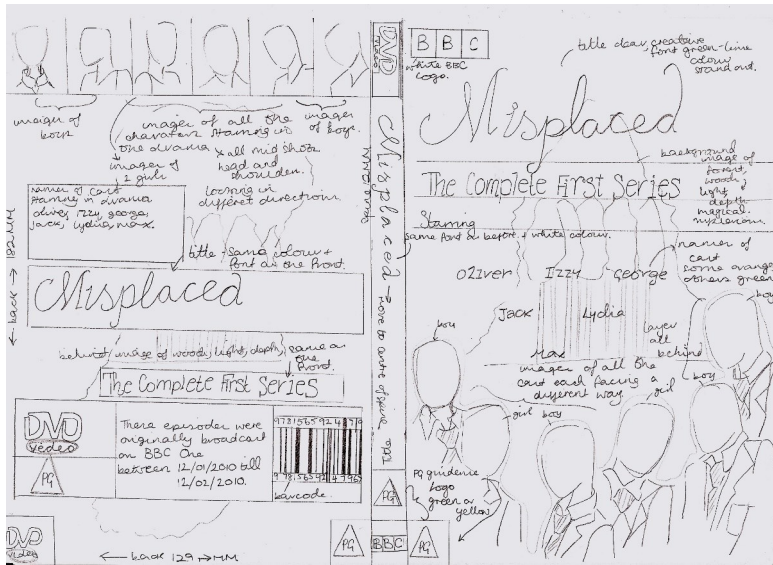 imager of
boys
images of all the
characters starring in
the drama
images of
2 girls
* all mid shots
head and
shoulders
looking in
different directions
images
of boys.
names of cast
starring in drama
oliver, izzy, george,
jack, lydia, max.
← back → 182MM
title - same colour +
font as the front.
Misplaced
behind image of woods, light, depth, same as
the front.
The Complete First Series
DVD
video
PG
These episodes were
originally broadcast
on BBC One
between 12/01/2010 till
12/02/2010.
barcode.
DVD
video
← back 129 → MM
PG
DVD
video
Misplaced → move to centre of spine
PG
BBC
BBC
white BBC
logo.
title clear, creative
font green-lime
colour
stand out.
Misplaced
background
image of
forest,
woods,
light,
depth
magical
mysterious.
The Complete First Series
Starring
same font as before + white colour.
names of
cast
some orange
others green
Oliver Izzy George
Jack Lydia
Max
layer
all
behind
boy
boy
images of all the
cast each facing a
different way
girl
boy
girl
boy
PG guidence
logo
green or
yellow
PG